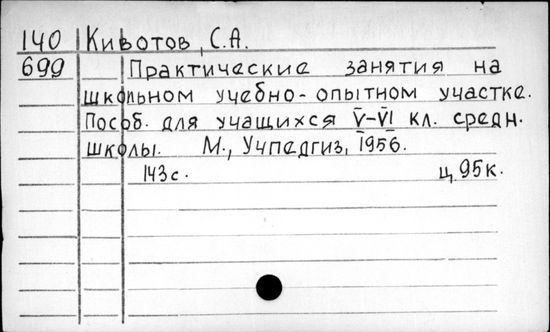 140 Кивотов, С.А.
699 Практические занятия на
школьном учебно-опытном участке.
Пособ. для учащихся V-VI кл. средн.
школы. М., Учпедгиз, 1956.
143с. ц. 95к.